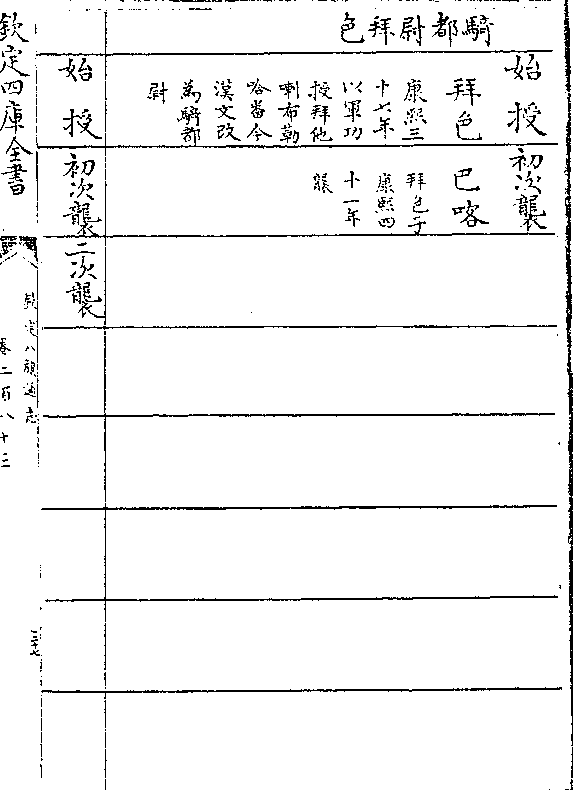 騎都尉拜色
始授
拜色
康熙三
十七年
以軍功
授拜他
喇布勒
哈番今
漢文改
為騎都
尉
初次襲
巴喀
拜色子
康熙四
十一年
襲
始授
初次襲
二次襲
欽定四庫全書
欽定八旗通志
卷二百八十三